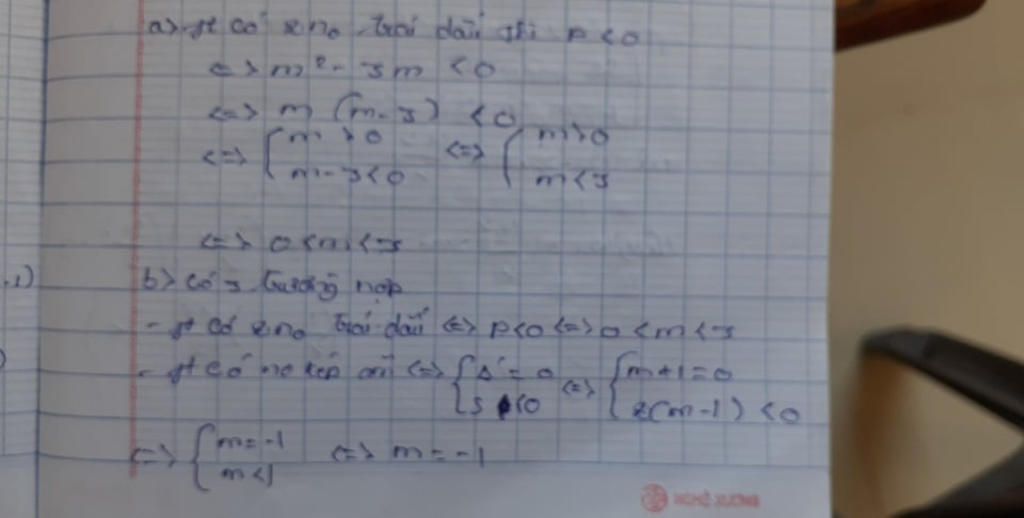 a) pt có 2 no trái dấu khi P < 0
<=> m² - 3m < 0
<=> m (m - 3) < 0
<=> { m > 0 <=> { m > 0
m - 3 < 0 m < 3
<=> 0 < m < 3
b) Có 3 trường hợp
- pt có 2 no trái dấu <=> P < 0 <=> 0 < m < 3
- pt có no kép âm <=> { Δ' = 0 <=> { m + 1 = 0
S < 0 2(m - 1) < 0
<=> { m = -1 <=> m = -1
m < 1